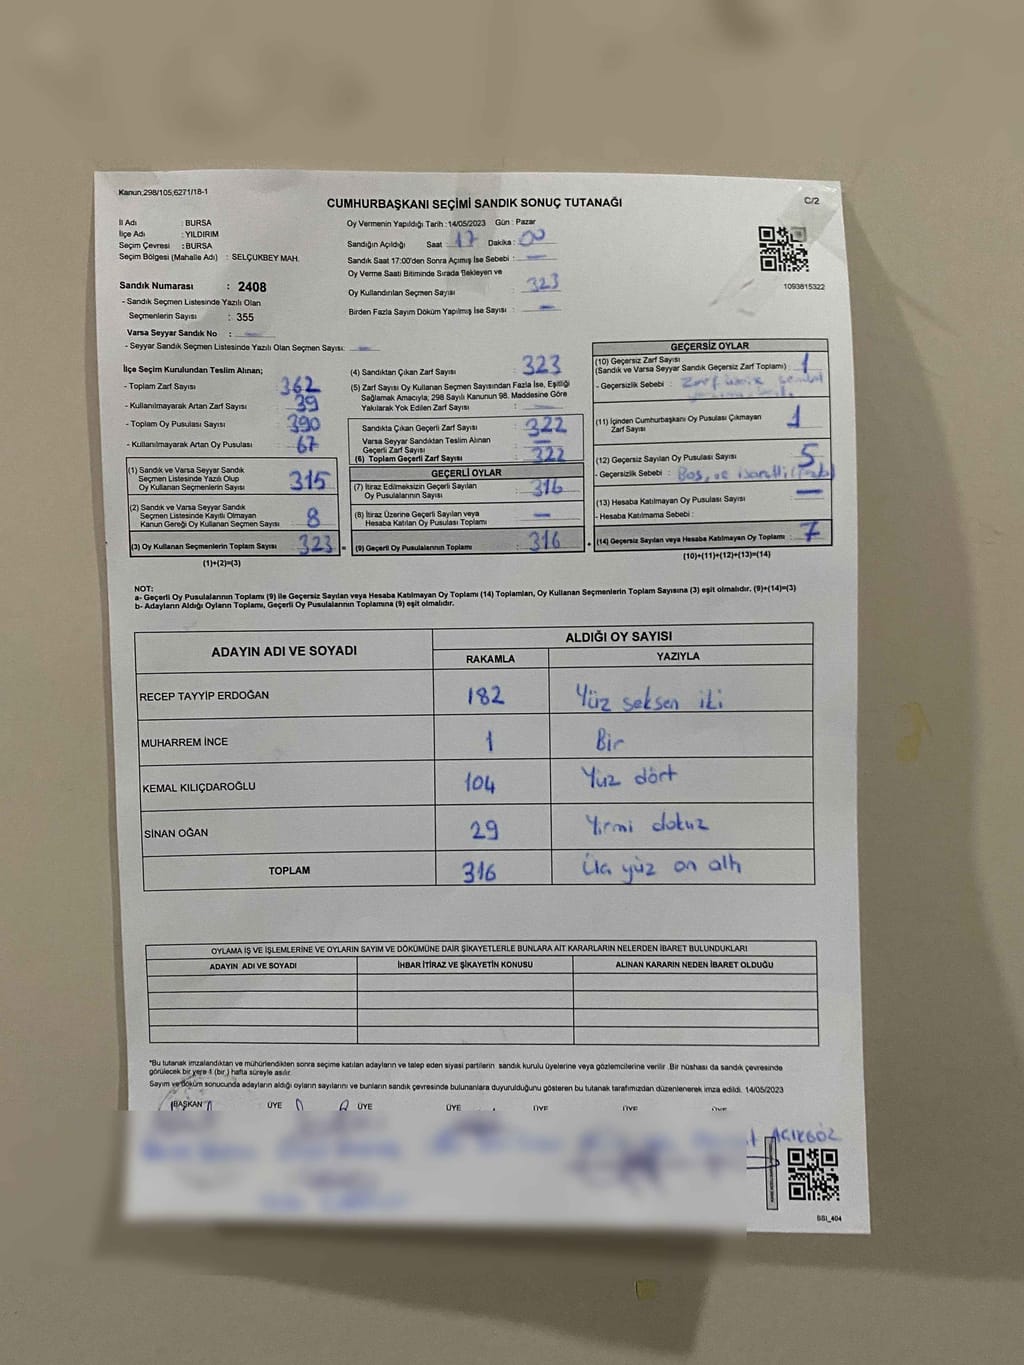 Kanun;298/105;6271/18-1
CUMHURBAŞKANI SEÇİMİ SANDIK SONUÇ TUTANAĞI
C/2
İl Adı : BURSA
İlçe Adı : YILDIRIM
Seçim Çevresi : BURSA
Seçim Bölgesi (Mahalle Adı) : SELÇUKBEY MAH.
Oy Vermenin Yapıldığı Tarih : 14/05/2023 Gün : Pazar
Sandığın Açıldığı Saat : 17 Dakika : 00
Sandık Saat 17:00'den Sonra Açmış İse Sebebi : —
Oy Verme Saati Bitiminde Sırada Bekleyen ve
Oy Kullandırılan Seçmen Sayısı : 323
Birden Fazla Sayım Döküm Yapılmış İse Sayısı : —
1093815322
Sandık Numarası : 2408
- Sandık Seçmen Listesinde Yazılı Olan
Seçmenlerin Sayısı : 355
Varsa Seyyar Sandık No : —
- Seyyar Sandık Seçmen Listesinde Yazılı Olan Seçmen Sayısı: —
İlçe Seçim Kurulundan Teslim Alınan;
- Toplam Zarf Sayısı : 362
- Kullanılmayarak Artan Zarf Sayısı : 39
- Toplam Oy Pusulası Sayısı : 390
- Kullanılmayarak Artan Oy Pusulası : 67
(1) Sandık ve Varsa Seyyar Sandık
Seçmen Listesinde Yazılı Olup
Oy Kullanan Seçmenlerin Sayısı : 315
(2) Sandık ve Varsa Seyyar Sandık
Seçmen Listesinde Kayıtlı Olmayan
Kanun Gereği Oy Kullanan Seçmen Sayısı : 8
(3) Oy Kullanan Seçmenlerin Toplam Sayısı : 323
(1)+(2)=(3)
(4) Sandıktan Çıkan Zarf Sayısı : 323
(5) Zarf Sayısı Oy Kullanan Seçmen Sayısından Fazla İse, Eşitliği
Sağlamak Amacıyla; 298 Sayılı Kanunun 98. Maddesine Göre
Yakılarak Yok Edilen Zarf Sayısı : —
Sandıkta Çıkan Geçerli Zarf Sayısı : 322
Varsa Seyyar Sandıktan Teslim Alınan
Geçerli Zarf Sayısı : —
(6) Toplam Geçerli Zarf Sayısı : 322
GEÇERLİ OYLAR
(7) İtiraz Edilmeksizin Geçerli Sayılan
Oy Pusulalarının Sayısı : 316
(8) İtiraz Üzerine Geçerli Sayılan veya
Hesaba Katılan Oy Pusulası Toplamı : —
= (9) Geçerli Oy Pusulalarının Toplamı : 316
GEÇERSİZ OYLAR
(10) Geçersiz Zarf Sayısı
(Sandık ve Varsa Seyyar Sandık Geçersiz Zarf Toplamı) : 1
- Geçersizlik Sebebi : Zarf
(11) İçinden Cumhurbaşkanı Oy Pusulası Çıkmayan
Zarf Sayısı : 1
(12) Geçersiz Sayılan Oy Pusulası Sayısı : 5
- Geçersizlik Sebebi : Boş, ve
(13) Hesaba Katılmayan Oy Pusulası Sayısı : —
- Hesaba Katılmama Sebebi :
+ (14) Geçersiz Sayılan veya Hesaba Katılmayan Oy Toplamı : 7
(10)+(11)+(12)+(13)=(14)
NOT:
a- Geçerli Oy Pusulalarının Toplamı (9) ile Geçersiz Sayılan veya Hesaba Katılmayan Oy Toplamı (14) Toplamları, Oy Kullanan Seçmenlerin Toplam Sayısına (3) eşit olmalıdır. (9)+(14)=(3)
b- Adayların Aldığı Oyların Toplamı, Geçerli Oy Pusulalarının Toplamına (9) eşit olmalıdır.
ADAYIN ADI VE SOYADI ALDIĞI OY SAYISI
RAKAMLA YAZIYLA
RECEP TAYYİP ERDOĞAN 182 Yüz seksen iki
MUHARREM İNCE 1 Bir
KEMAL KILIÇDAROĞLU 104 Yüz dört
SİNAN OĞAN 29 Yirmi dokuz
TOPLAM 316 Üç yüz on altı
OYLAMA İŞ VE İŞLEMLERİNE VE OYLARIN SAYIM VE DÖKÜMÜNE DAİR ŞİKAYETLERLE BUNLARA AİT KARARLARIN NELERDEN İBARET BULUNDUKLARI
ADAYIN ADI VE SOYADI İHBAR İTİRAZ VE ŞİKAYETİN KONUSU ALINAN KARARIN NEDEN İBARET OLDUĞU
*Bu tutanak imzalandıktan ve mühürlendikten sonra seçime katılan adayların ve talep eden siyasi partilerin sandık kurulu üyelerine veya gözlemcilerine verilir .Bir nüshası da sandık çevresinde
görülecek bir yere 1 (bir.) hafta süreyle asılır.
Sayım ve döküm sonucunda adayların aldığı oyların sayılarını ve bunların sandık çevresinde bulunanlara duyurulduğunu gösteren bu tutanak tarafımızdan düzenlenerek imza edildi. 14/05/2023
BAŞKAN ÜYE ÜYE ÜYE ÜYE ÜYE ÜYE
AÇIKGÖZ
BSI_404